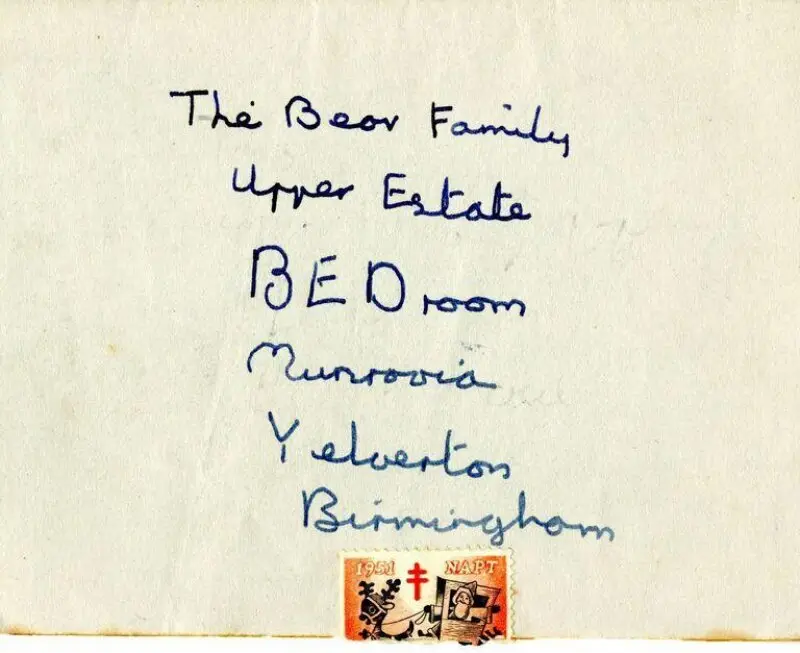 The Bear Family
Upper Estate
BEDroom
Munrovia
Yelverton
Birmingham
1951 NAPT